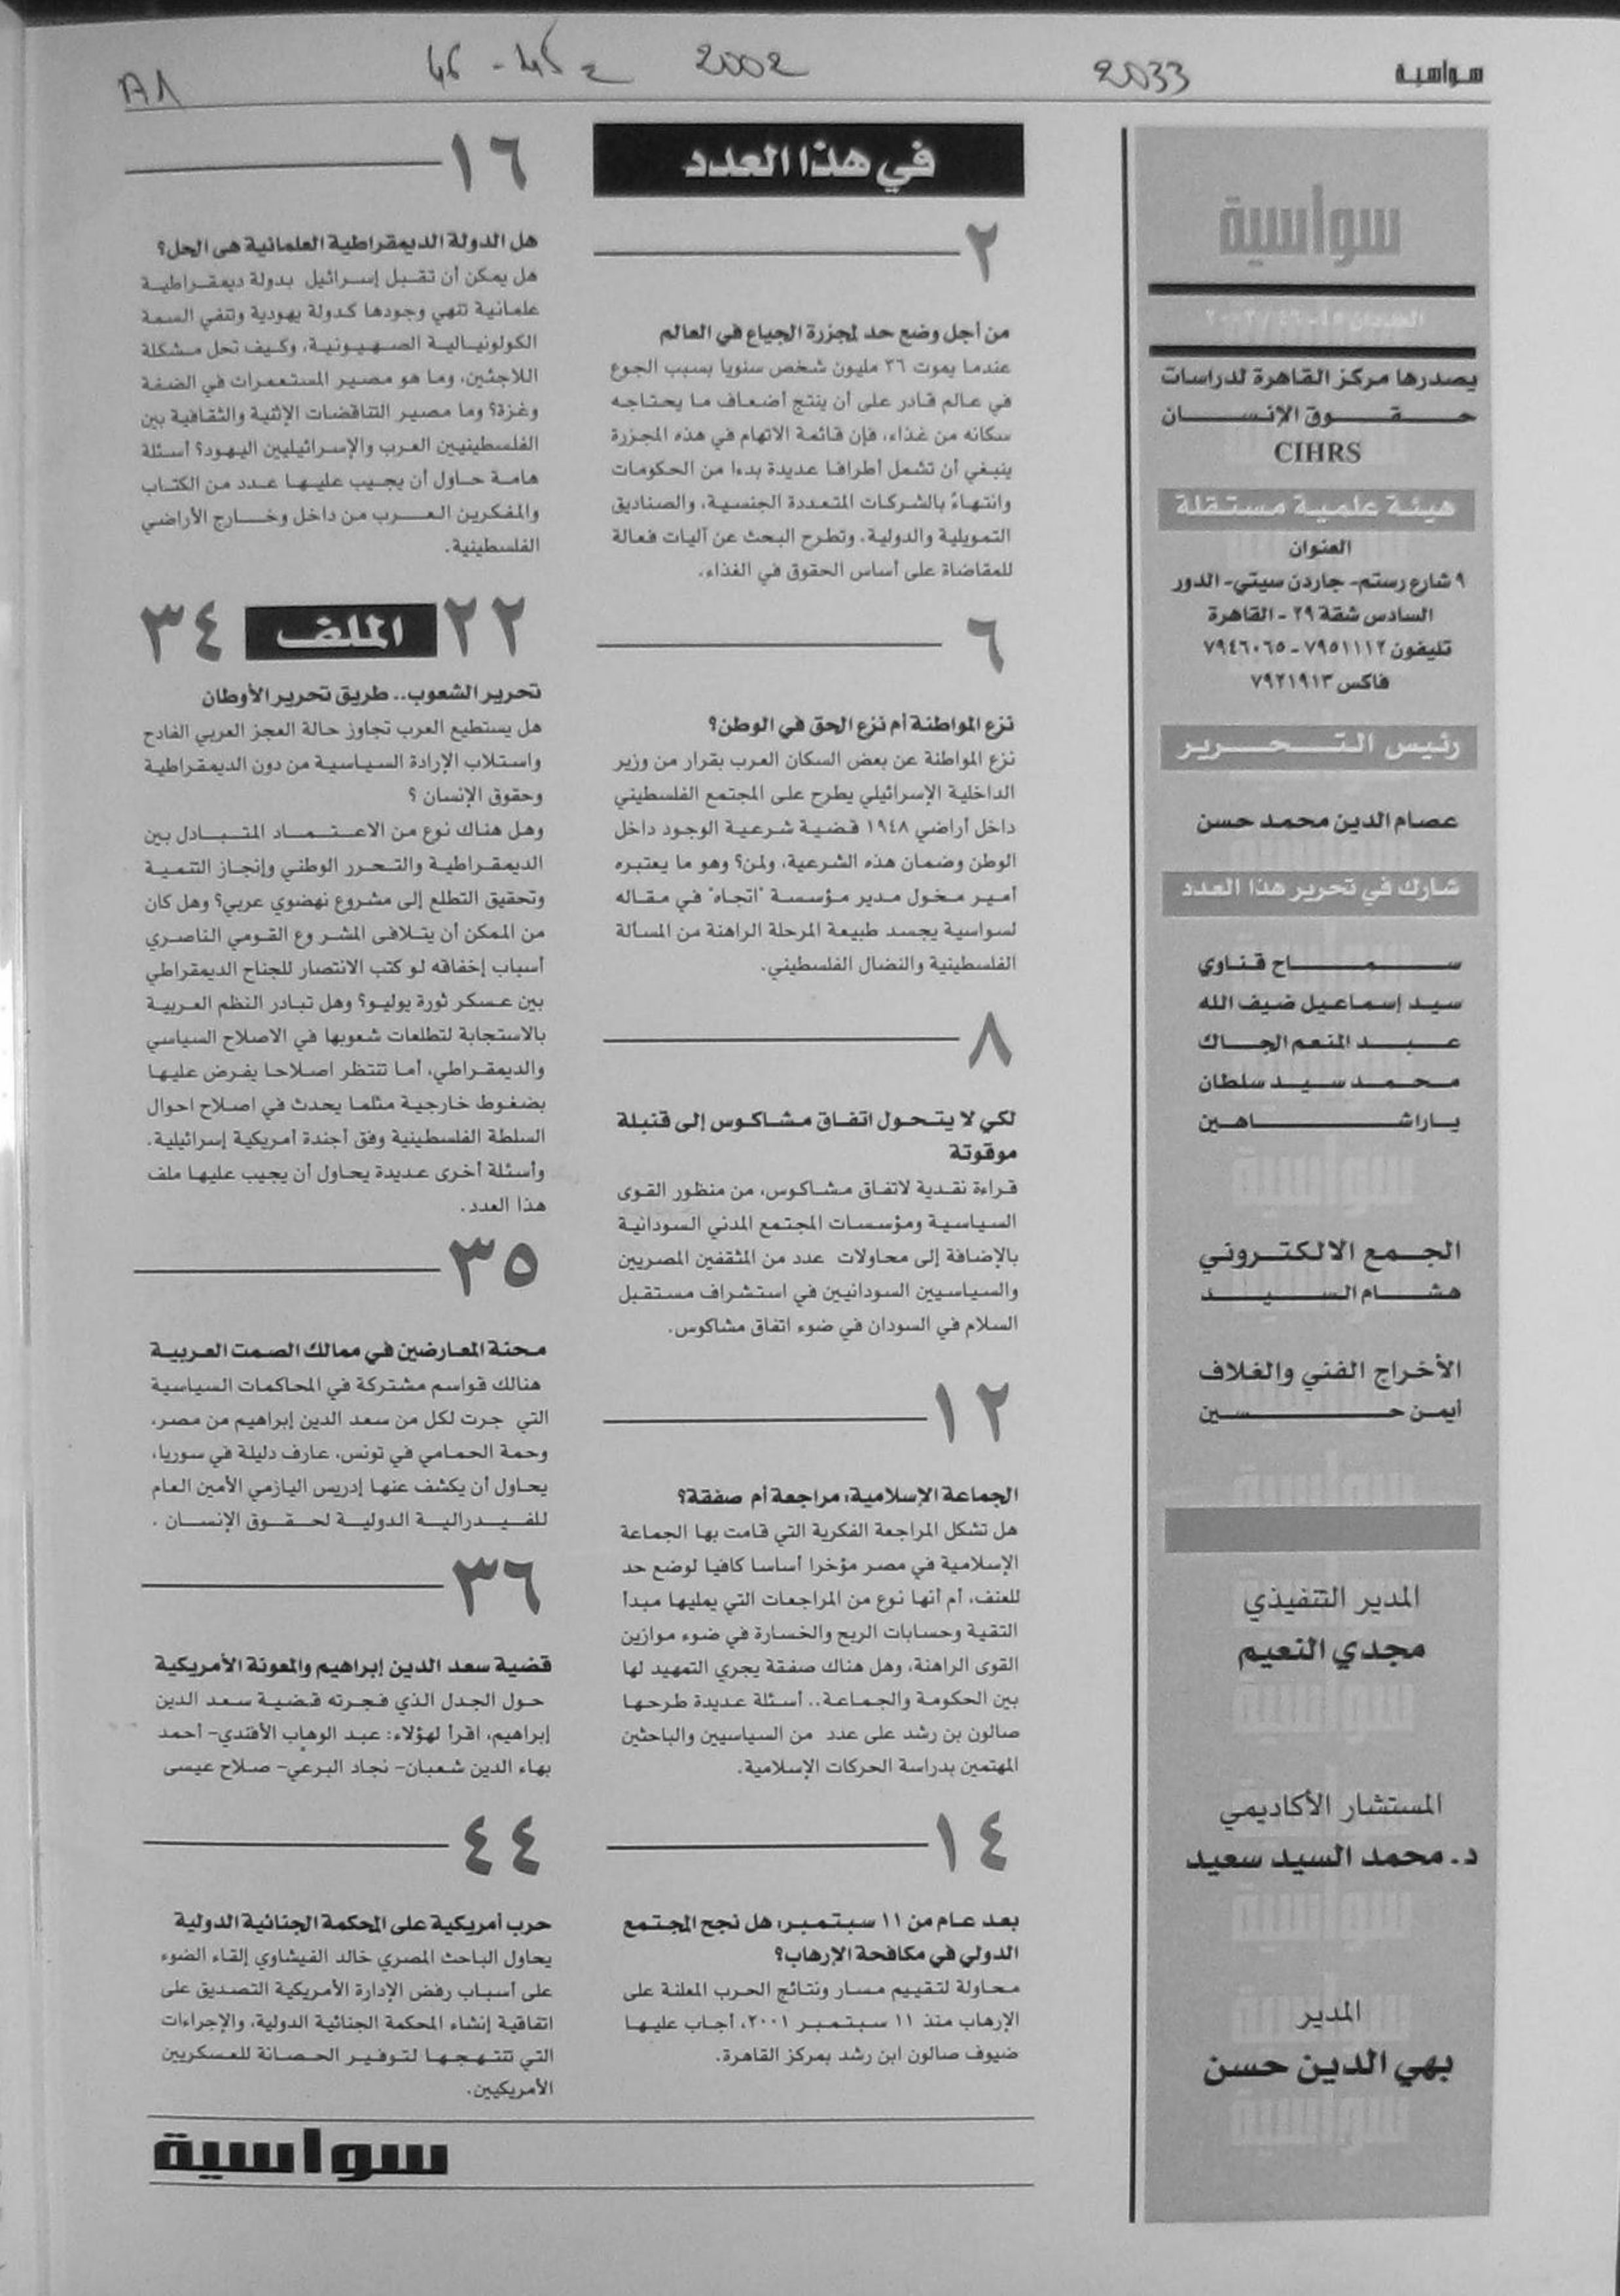 سواسية
2033
2002
45 - 46
A1
سواسية
العددان ٤٥-٤٦ / ٢٠٠٢
يصدرها مركز القاهرة لدراسات
حقوق الإنسان
CIHRS
هيئة علمية مستقلة
العنوان
٩ شارع رستم- جاردن سيتي- الدور
السادس شقة ٢٩ - القاهرة
تليفون ٧٩٥١١١٢ - ٧٩٤٦٠٦٥
فاكس ٧٩٢١٩١٣
رئيس التحرير
عصام الدين محمد حسن
شارك في تحرير هذا العدد
سماح قناوي
سيد إسماعيل ضيف الله
عبد المنعم الجاك
محمد سيد سلطان
يارا شاهين
الجمع الالكتروني
هشام السيد
الأخراج الفني والغلاف
أيمن حسين
المدير التنفيذي
مجدي النعيم
المستشار الأكاديمي
د. محمد السيد سعيد
المدير
بهي الدين حسن
في هذا العدد
٢
من أجل وضع حد لمجزرة الجياع في العالم
عندما يموت ٣٦ مليون شخص سنويا بسبب الجوع
في عالم قادر على أن ينتج أضعاف ما يحتاجه
سكانه من غذاء، فإن قائمة الاتهام في هذه المجزرة
ينبغي أن تشمل أطرافا عديدة بدءا من الحكومات
وانتهاءً بالشركات المتعددة الجنسية، والصناديق
التمويلية والدولية. وتطرح البحث عن آليات فعالة
للمقاضاة على أساس الحقوق في الغذاء.
٦
نزع المواطنة أم نزع الحق في الوطن؟
نزع المواطنة عن بعض السكان العرب بقرار من وزير
الداخلية الإسرائيلي يطرح على المجتمع الفلسطيني
داخل أراضي ١٩٤٨ قضية شرعية الوجود داخل
الوطن وضمان هذه الشرعية، ولمن؟ وهو ما يعتبره
أمير مخول مدير مؤسسة "اتجاه" في مقاله
لسواسية يجسد طبيعة المرحلة الراهنة من المسألة
الفلسطينية والنضال الفلسطيني.
٨
لكي لا يتحول اتفاق مشاكوس إلى قنبلة
موقوتة
قراءة نقدية لاتفاق مشاكوس، من منظور القوى
السياسية ومؤسسات المجتمع المدني السودانية
بالإضافة إلى محاولات عدد من المثقفين المصريين
والسياسيين السودانيين في استشراف مستقبل
السلام في السودان في ضوء اتفاق مشاكوس.
١٢
الجماعة الإسلامية: مراجعة أم صفقة؟
هل تشكل المراجعة الفكرية التي قامت بها الجماعة
الإسلامية في مصر مؤخرا أساسا كافيا لوضع حد
للعنف، أم أنها نوع من المراجعات التي يمليها مبدأ
التقية وحسابات الربح والخسارة في ضوء موازين
القوى الراهنة، وهل هناك صفقة يجري التمهيد لها
بين الحكومة والجماعة.. أسئلة عديدة طرحها
صالون بن رشد على عدد من السياسيين والباحثين
المهتمين بدراسة الحركات الإسلامية.
١٤
بعد عام من ١١ سبتمبر: هل نجح المجتمع
الدولي في مكافحة الإرهاب؟
محاولة لتقييم مسار ونتائج الحرب المعلنة على
الإرهاب منذ ١١ سبتمبر ٢٠٠١، أجاب عليها
ضيوف صالون ابن رشد بمركز القاهرة.
١٦
هل الدولة الديمقراطية العلمانية هى الحل؟
هل يمكن أن تقبل إسرائيل بدولة ديمقراطية
علمانية تنهي وجودها كدولة يهودية وتنفي السمة
الكولونيالية الصهيونية، وكيف تحل مشكلة
اللاجئين، وما هو مصير المستعمرات في الضفة
وغزة؟ وما مصير التناقضات الإثنية والثقافية بين
الفلسطينيين العرب والإسرائيليين اليهود؟ أسئلة
هامة حاول أن يجيب عليها عدد من الكتاب
والمفكرين العرب من داخل وخارج الأراضي
الفلسطينية.
٢٢ الملف ٣٤
تحرير الشعوب.. طريق تحرير الأوطان
هل يستطيع العرب تجاوز حالة العجز العربي الفادح
واستلاب الإرادة السياسية من دون الديمقراطية
وحقوق الإنسان ؟
وهل هناك نوع من الاعتماد المتبادل بين
الديمقراطية والتحرر الوطني وإنجاز التنمية
وتحقيق التطلع إلى مشروع نهضوي عربي؟ وهل كان
من الممكن أن يتلافى المشروع القومي الناصري
أسباب إخفاقه لو كتب الانتصار للجناح الديمقراطي
بين عسكر ثورة يوليو؟ وهل تبادر النظم العربية
بالاستجابة لتطلعات شعوبها في الاصلاح السياسي
والديمقراطي، أما تنتظر اصلاحا يفرض عليها
بضغوط خارجية مثلما يحدث في اصلاح احوال
السلطة الفلسطينية وفق أجندة أمريكية إسرائيلية.
وأسئلة أخرى عديدة يحاول أن يجيب عليها ملف
هذا العدد.
٣٥
محنة المعارضين في ممالك الصمت العربية
هنالك قواسم مشتركة في المحاكمات السياسية
التي جرت لكل من سعد الدين إبراهيم من مصر،
وحمة الحمامي في تونس، عارف دليلة في سوريا،
يحاول أن يكشف عنها إدريس اليازمي الأمين العام
للفيدرالية الدولية لحقوق الإنسان .
٣٦
قضية سعد الدين إبراهيم والمعونة الأمريكية
حول الجدل الذي فجرته قضية سعد الدين
إبراهيم، اقرأ لهؤلاء: عبد الوهاب الأفندي- أحمد
بهاء الدين شعبان- نجاد البرعي- صلاح عيسى
٤٤
حرب أمريكية على المحكمة الجنائية الدولية
يحاول الباحث المصري خالد الفيشاوي إلقاء الضوء
على أسباب رفض الإدارة الأمريكية التصديق على
اتفاقية إنشاء المحكمة الجنائية الدولية، والإجراءات
التي تنتهجها لتوفير الحصانة للعسكريين
الأمريكيين.
سواسية